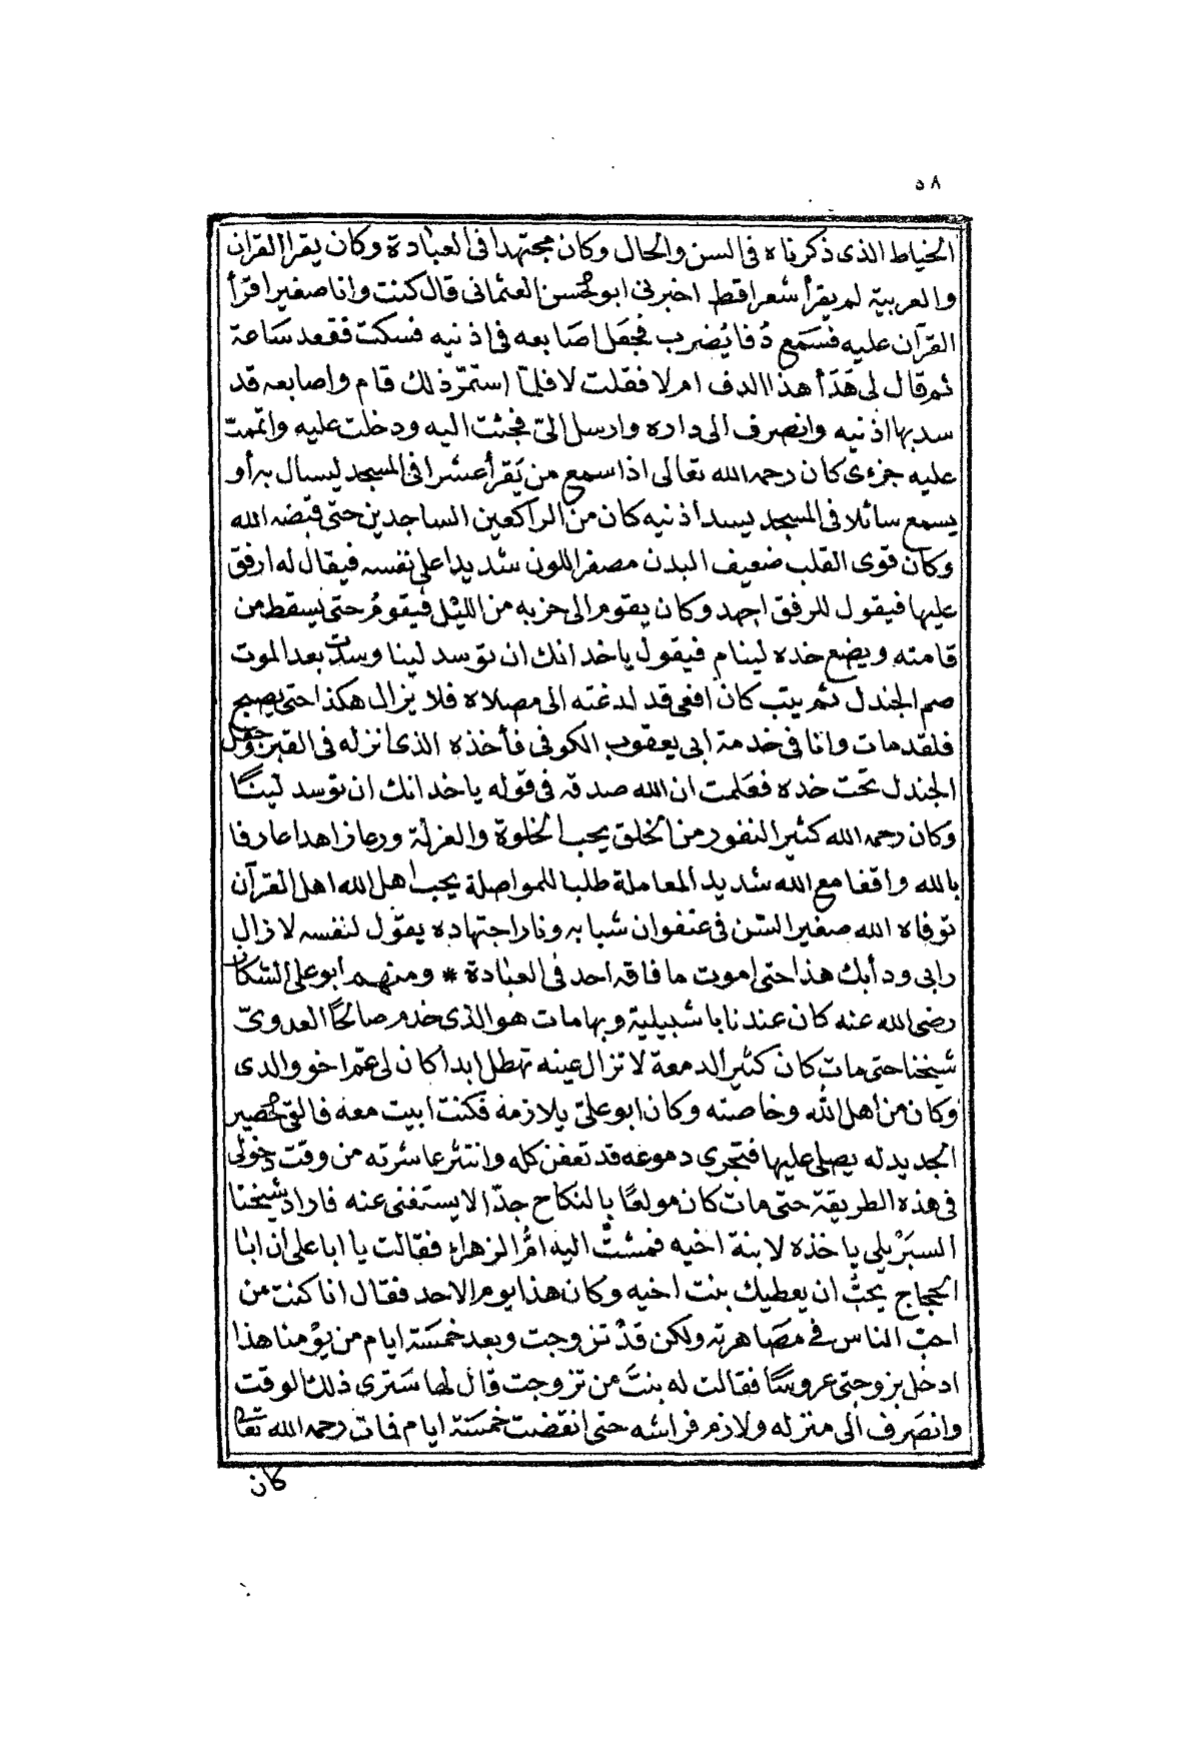 ٥٨
الخياط الذى ذكرناه فى السن والحال وكان مجتهدا فى العبادة وكان يقرا القران
والعربية لم يقرأ شعرا قط اخبرنى ابو الحسن العثمانى قال كنت وانا صغير اقرأ
القرآن عليه فسمع دُفا يُضرب فجعل اصابعه فى اذنيه فسكت فقعد ساعة
ثم قال لى هَدَأ هذا الدف ام لا فقلت لا فلمّا استمرّ ذلك قام واصابعه قد
سد بها اذنيه وانصرف الى داره وارسل الىّ فجئت اليه ودخلت عليه واتممت
عليه جزءى كان رحمه الله تعالى اذا سمع من يَقرأ عشرا فى المسجد ليسال به أو
يسمع سائلا فى المسجد يسد أذنيه كان من الراكعين الساجدين حتى قبضه الله
وكان قوى القلب ضعيف البدن مصفر اللون شديدا على نفسه فيقال له ارفق
عليها فيقول للرفق اجهد وكان يقوم الى حزبه من الليل فيقومُ حتى يسقط من
قامته ويضع خده لينام فيقول ياخد انك ان توسد لينا وسدت بعد الموت
صم الجندل ثم يثب كان افعى قد لدغته الى مصلاه فلا يزال هكذا حتى يصبح
فلقد مات وانا فى خدمة ابى يعقوب الكوفى فأخذه الذى انزله فى القبر وجعل
الجندل تحت خده فعلمت ان الله صدقه فى قوله ياخد انك ان توسد لينًا
وكان رحمه الله كثير النفور من الخلق يحب الخلوة والعزلة ورعا زاهدا عارفا
بالله واقفا مع الله شديد المعاملة طلبا للمواصلة يحب اهل الله اهل القرآن
توفاه الله صغير السّن فى عنفوان شبابه ونار اجتهاده يقول لنفسه لا زال
دابى ودأبك هذا حتى اموت ما فاقه احد فى العبادة * ومنهم أبو على الشكاز
رضى الله عنه كان عندنا باشبيلية وبها مات هو الذى خدم صالحًا العدوىّ
شيخنا حتى مات كان كثير الدمعة لا تزال عينه تهطل ابدا كان لى عمّ اخو والدى
وكان من أهل الله وخاصته وكان ابو علىّ يلازمه فكنت ابيت معه فالقى الحصير
الجديد له يصلى عليها فتجرى دموعه قد تعفن كله وانتثر عاشرته من وقت دخولى
فى هذه الطريقة حتى مات كان مولعًا بالنكاح جدّا لا يستغنى عنه فاراد شيخنا
السبَرْبلى ياخذه لابنة اخيه فمشتْ اليه امُّ الزهراء فقالت يا ابا على ان ابا
الحجاج يحبُّ ان يعطيك بنت اخيه وكان هذا يوم الاحد فقال انا كنت من
احب الناس فى مصَاهرته ولكن قدْ تزوجت وبعد خمسَة ايام من يوْمنا هذا
ادخل بزوجتى عروسًا فقالت له بنتَ من تزوجت قال لها سَترى ذلك الوقت
وانصَرف الى منزله ولازم فراشه حتى انقضت خمسَة ايام فات رحمه الله تعَا
كان